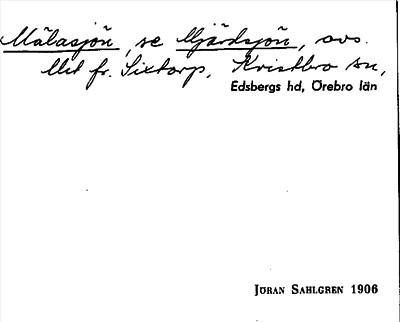 Målasjön, se Mjärdsjön, avs.
Utt fr. Sixtorp, Kvistbro sn,
Edsbergs hd, Örebro län
JÖRAN SAHLGREN 1906